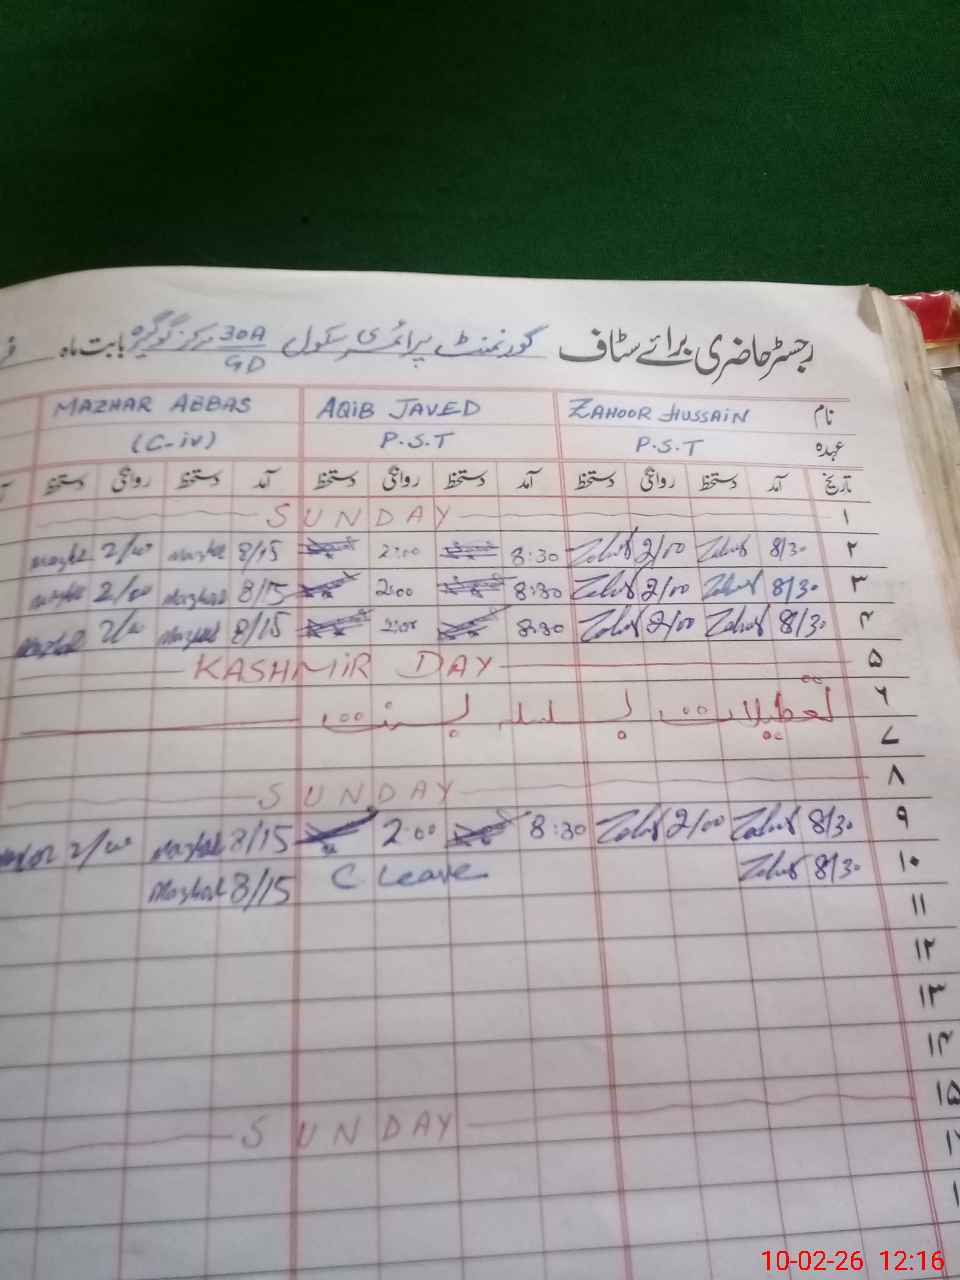 رجسٹر حاضری برائے سٹاف گورنمنٹ پرائمری سکول 30A/GD مرکز گوگیرہ بابت ماہ
نام ZAHOOR HUSSAIN AQIB JAVED MAZHAR ABBAS
عہدہ P.S.T P.S.T (C-iv)
تاریخ آمد دستخط روانگی دستخط آمد دستخط روانگی دستخط آمد دستخط روانگی دستخط
۱ SUNDAY
۲ 8/30 Zahoor 2/00 Zahoor 8:30 2:00 8/15 Mazhar 2/00 Mazhar
۳ 8/30 Zahoor 2/00 Zahoor 8:30 2:00 8/15 Mazhar 2/00 Mazhar
۴ 8/30 Zahoor 2/00 Zahoor 8:30 2:00 8/15 Mazhar 2/00 Mazhar
۵ KASHMIR DAY
۶ تعطیلات بسلسلہ بسنت
۷
۸ SUNDAY
۹ 8/30 Zahoor 2/00 Zahoor 8:30 2:00 8/15 Mazhar 2/00 Mazhar
۱۰ 8/30 Zahoor C. Leave 8/15 Mazhar
۱۱
۱۲
۱۳
۱۴
۱۵ SUNDAY
10-02-26 12:16